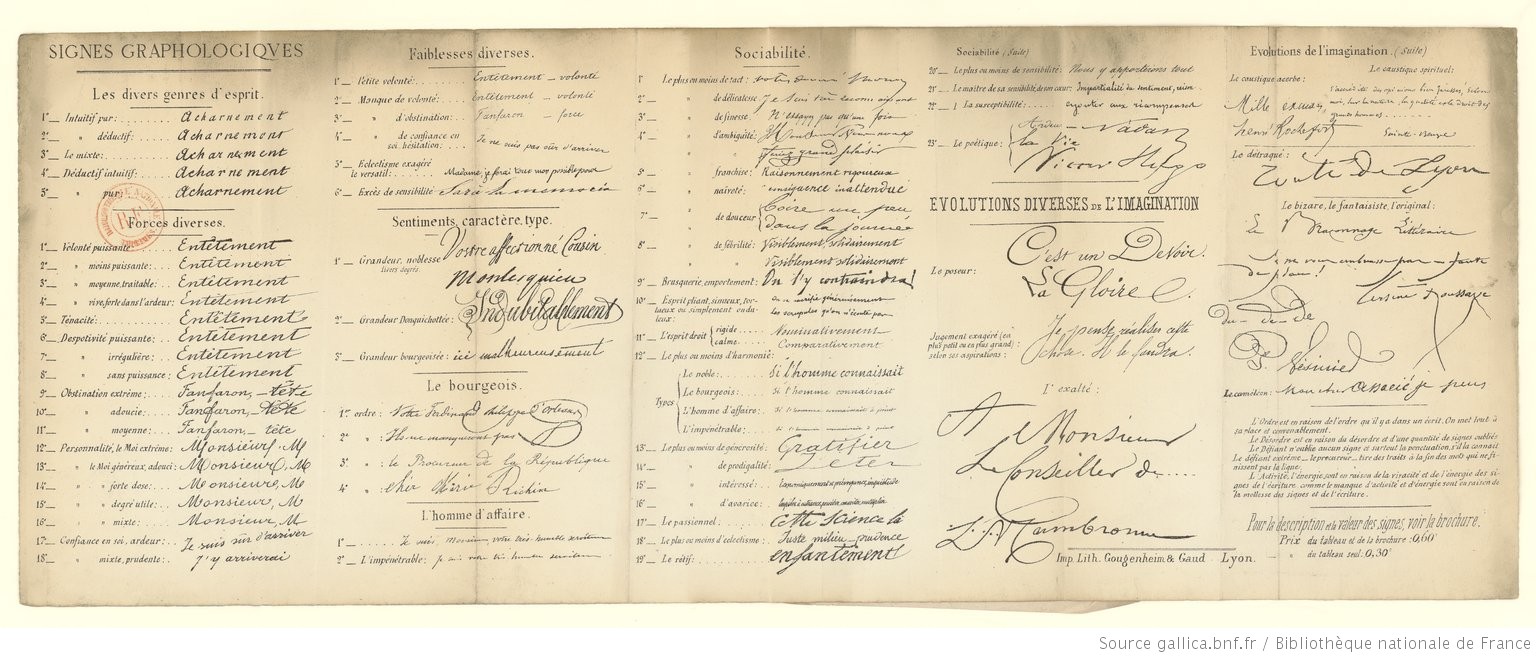 SIGNES GRAPHOLOGIQVES
Les divers genres d'esprit.
1°_ Intuitif pur: Acharnement
2°_ " déductif: Acharnement
3°_ Le mixte: Acharnement
4°_ Déductif intuitif: Acharnement
5°_ " pur: Acharnement
Forces diverses.
1°_ Volonté puissante: Entêtement
2°_ " moins puissante: Entêtement
3°_ " moyenne, traitable: Entêtement
4°_ " vive, forte dans l'ardeur: Entêtement
5°_ Ténacité: Entêtement
6°_ Despotivité puissante: Entêtement
7°_ " irrégulière: Entêtement
8°_ " sans puissance: Entêtement
9°_ Obstination extrême: Fanfaron, _ tête
10°_ " adoucie: Fanfaron, _ tête
11°_ " moyenne: Fanfaron, _ tête
12°_ Personnalité, le Moi extrême: Monsieur, M
13°_ " le Moi généreux, adouci: Monsieur, M
14°_ " forte dose: Monsieur, M
15°_ " degré utile: Monsieur, M
16°_ " mixte: Monsieur, M
17°_ Confiance en soi, ardeur: Je suis sûr d'arriver
18°_ " mixte, prudente: J'y arriverai
Faiblesses diverses.
1°_ Petite volonté: Entêtement _ volonté
2°_ Manque de volonté: Entêtement _ volonté
3°_ " d'obstination: Fanfaron _ force
4°_ " de confiance en soi, hésitation: Je ne suis pas sûr d'arriver
5°_ Eclectisme exagéré
le versatil: Madame, je ferai tout mon possible pour
6°_ Excès de sensibilité
Sentiments, caractère, type.
1°_ Grandeur, noblesse Votre affectionné Cousin
tiers degrés. Montesquieu
2°_ Grandeur Donquichottée: Indubitablement
3°_ Grandeur bourgeoisée: ici malheureusement
Le bourgeois.
1er ordre: Votre Ferdinand Philippe d'Orléans
2° " : Ils ne manquèrent pas
3° " : le Procureur de la République
4° " : cher
L'homme d'affaire.
1°_ Je suis, Monsieur, votre très humble serviteur
2°_ L'impénétrable: Je suis votre très humble serviteur
Sociabilité.
1°_ Le plus ou moins de tact:
2°_ " de délicatesse: Je suis
3°_ " de finesse: N'essayez pas qu'une fois
4°_ " d'ambiguité:
grand plaisir
5°_ " franchise: Raisonnement rigoureux
6°_ " naïveté: Conséquence inattendue
7°_ " de douceur { Boire un peu
dans la journée
8°_ " de fébrilité: Visiblement solidairement
" Visiblement solidairement
9°_ Brusquerie, emportement: On l'y contraindra!
10°_ Esprit pliant, sinueux, tortueux ou simplement onduleux: on a vérifié généreusement
les
11°_ L'esprit droit { rigide. Nominativement
calme. Comparativement
12°_ Le plus ou moins d'harmonie:
Types { Le noble: Si l'homme connaissait
Le bourgeois: Si l'homme connaissait
L'homme d'affaire:
L'impénétrable:
13°_ Le plus ou moins de générosité: Gratifier
14°_ " de prodigalité: Jeter
15°_ " intéressé:
16°_ " d'avarice:
17°_ Le passionnel: Cette Science la
18°_ Le plus ou moins d'eclectisme: Juste milieu _ prudence
19°_ Le rétif: enfantement
Sociabilité (Suite)
20°_ Le plus ou moins de sensibilité: Nous y apportions tout
21°_ Le maître de sa sensibilité, de son cœur: Impartialité du sentiment, raison
22°_ La susceptibilité:
23°_ Le poétique: { Nadar
la Vie
Victor Hugo
EVOLUTIONS DIVERSES DE L'IMAGINATION
Le poseur: C'est un Devoir.
La Gloire
Jugement exagéré (en plus petit ou en plus grand) selon ses aspirations: Je pense réaliser cette
chose. Il le faudra.
L'exalté:
A Monsieur
Le Conseiller de...
Cambronne
Evolutions de l'imagination. (Suite)
Le caustique acerbe: Le caustique spirituel:
Mille excuses
henri Rochefort Sainte-Beuve
Le détraqué:
Toute de Lyon
Le bizare, le fantaisiste, l'original:
Le Maçonnage Littéraire
Je ne vous embrasse pas _ faute
de place!
Arsène Houssaye
du-du-De
Désiré
Le caméléon: Mon cher Associé je puis
L'Ordre est en raison de l'ordre qu'il y a dans un écrit. On met tout à
sa place et convenablement.
Le Désordre est en raison du désordre et d'une quantité de signes oubliés
Le Défiant n'oublie aucun signe et surtout la ponctuation s'il la connaît
Le défiant extrême _ le procureur _ tire des traits à la fin des mots qui ne finissent pas la ligne.
L'Activité, l'énergie, sont en raison de la vivacité et de l'énergie des signes de l'écriture, comme le manque d'activité et d'énergie sont en raison de
la mollesse des signes et de l'écriture.
Pour la description et la valeur des signes, voir la brochure.
Prix du tableau et de la brochure: 0,60
" du tableau seul: 0,30
Imp. Lith. Gougenheim & Gaud. Lyon.
Source gallica.bnf.fr / Bibliothèque nationale de France